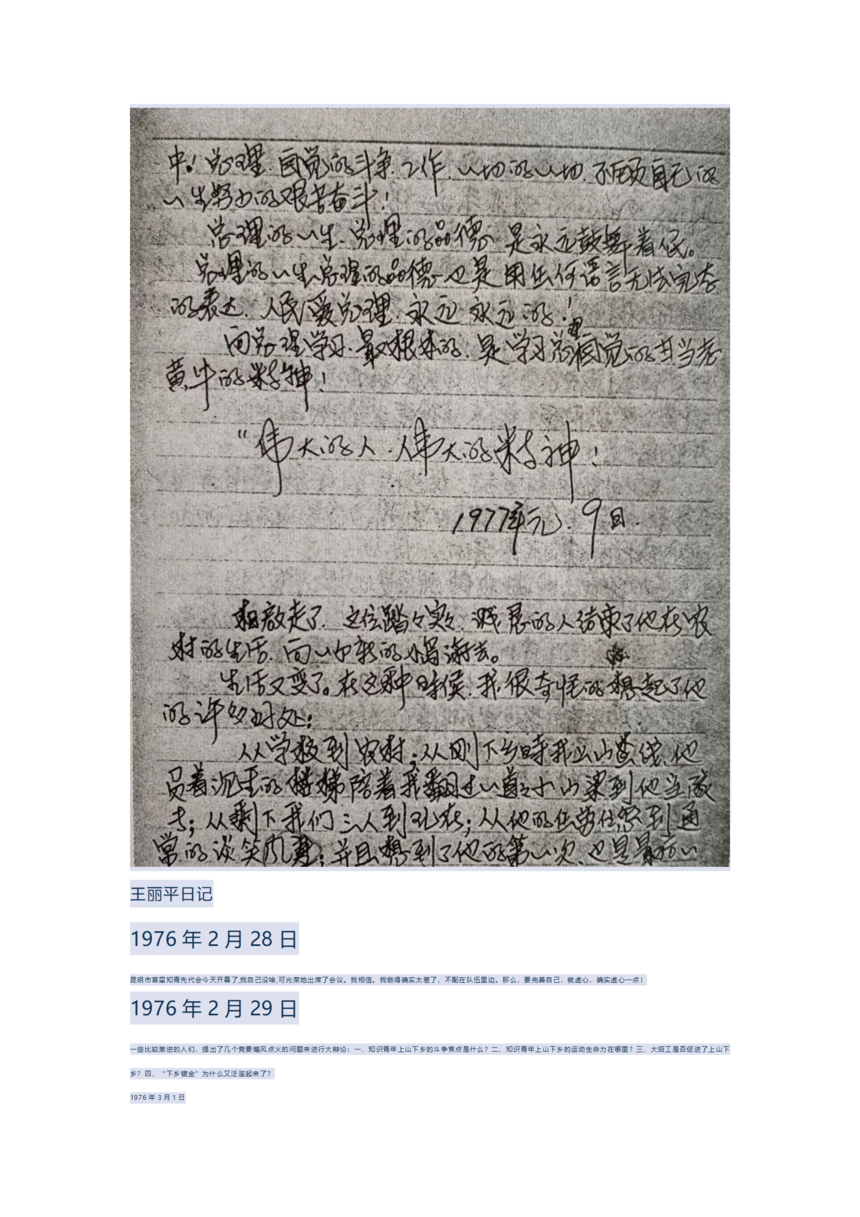 中！总理.自觉的斗争.工作.一切的一切.不顾自己的
一生努力的艰苦奋斗！
总理的一生.总理的品德.是永远鼓舞着人民。
总理的一生总理的品德也是用任何语言无法完全
的表达.人民爱总理.永远永远的！
向总理学习.最根本的.是学习总理自觉的甘当老
黄牛的精神！
“伟大的人.伟大的精神！
1977年元.9日.
走了.这位踏踏实实.诚恳的人结束了他在农
村的生活.向一个新的去。
生活又变了。在这种时候.我很奇怪的想起了他
的许多好处：
从学校到农村；从刚下乡时我出山.他
着沉重的陪着我翻过一道道小山梁到他当队
去；从剩下我们三人到现在；从他的任劳任怨到通
常的谈笑；并且想到了他的第一次.也是最后一
王丽平日记
1976 年 2 月 28 日
昆明市首届知青先代会今天开幕了,我自己没啥,可光荣地出席了会议。我相信。我做得确实太差了，不配在队伍里边。那么，要完善自己，就虚心，确实虚心一点！
1976 年 2 月 29 日
一些比较激进的人们，提出了几个竟要煽风点火的问题来进行大辩论：一、知识青年上山下乡的斗争焦点是什么？二、知识青年上山下乡的运动生命力在哪里？三、大招工是否促进了上山下
乡？四、“下乡镀金”为什么又泛滥起来了？
1976 年 3 月 1 日